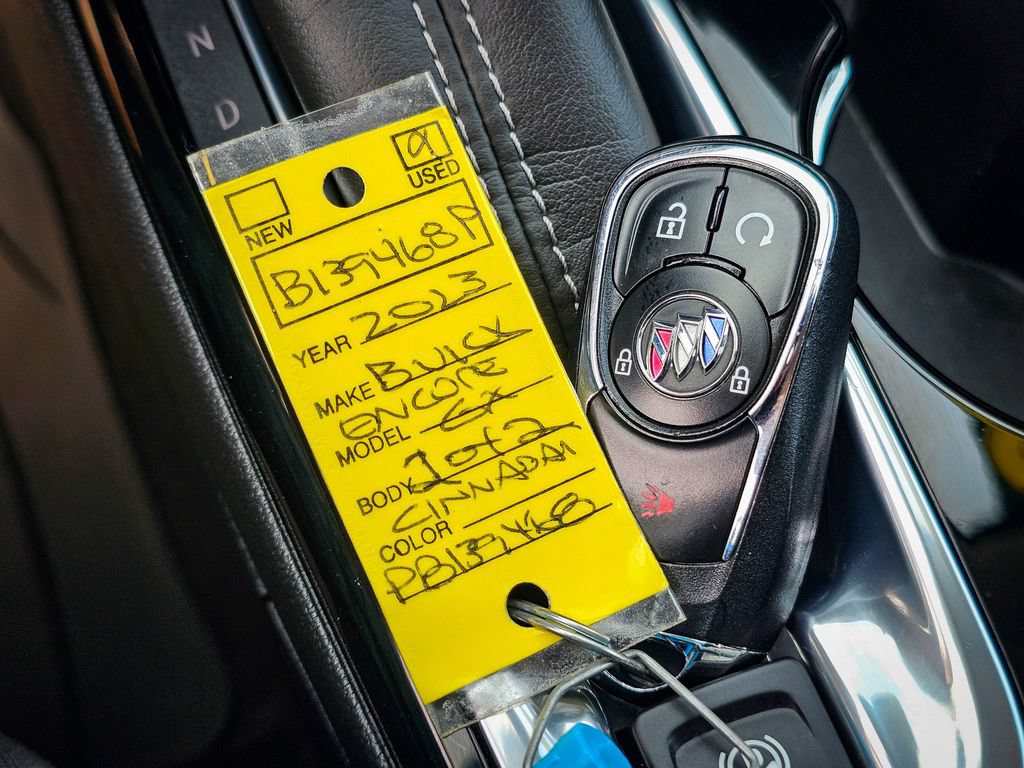 N
D
a
USED
NEW
B139468P
YEAR 2023
MAKE BUICK
ENCORE
MODEL GX
BODY 2 of 2
CINNABAR
COLOR
PB139468